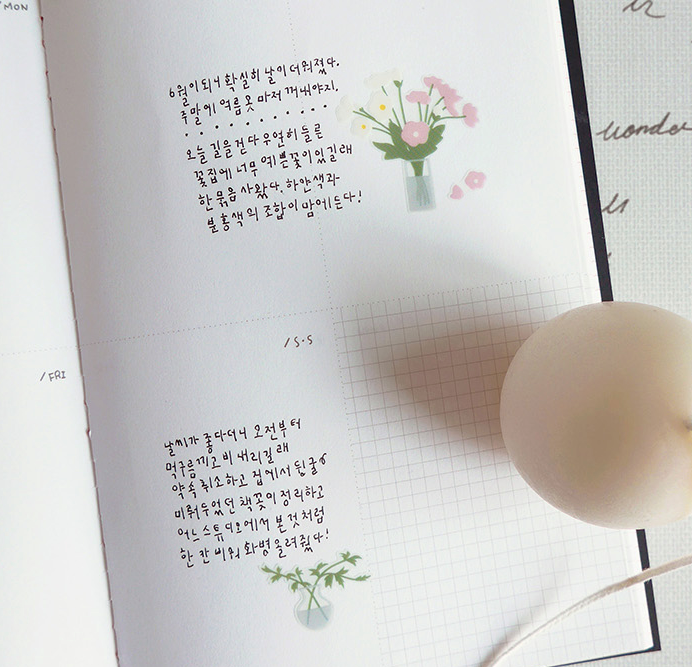 /MON
6월이 되니 확실히 날이 더워졌다.
주말에 여름 옷 마저 꺼내야지.
. . . . . . . . . .
오늘 길을 걷다 우연히 들른
꽃집에 너무 예쁜 꽃이 있길래
한 묶음 사왔다. 하얀색과
분홍색의 조합이 맘에 든다!
/FRI
/S·S
날씨가 좋다더니 오전부터
먹구름 끼고 비 내리길래
약속 취소하고 집에서 뒹굴
미뤄두었던 책꽂이 정리하고
어느 스튜디오에서 본 것처럼
한 칸 비워 화병 올려줬다!